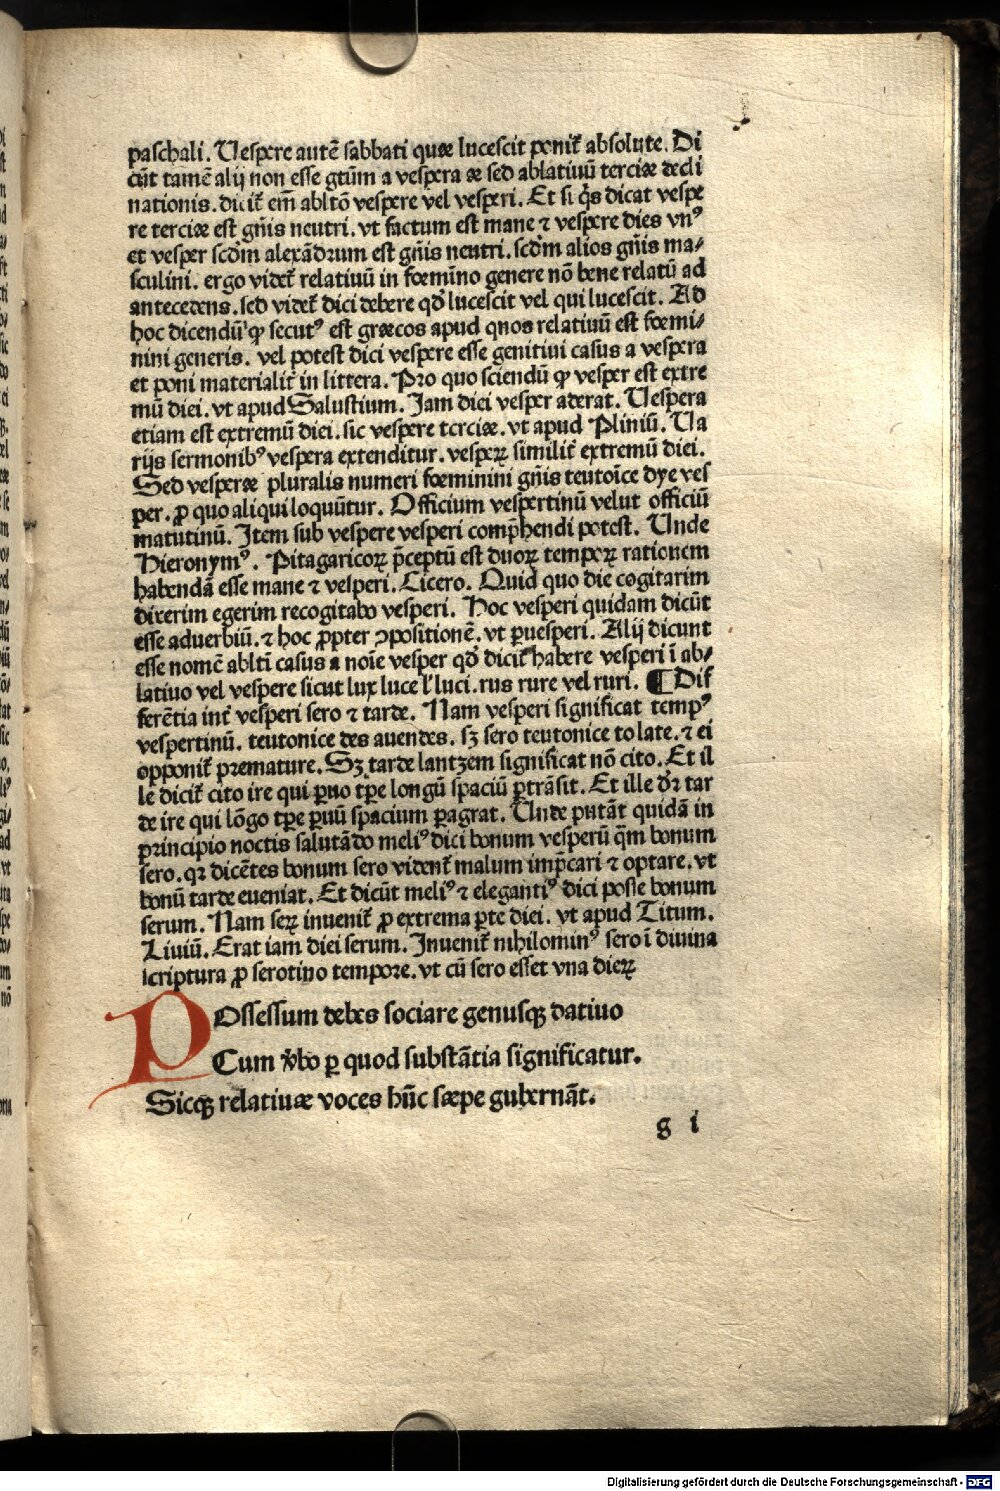 paschali. Uespere autē sabbati quae lucescit ponit᷑ absolute. Di
cūt tamē alij non esse gtūm a vespera ae sed ablatiuū terciae decli
nationis. dicit᷑ em̄ abltō vespere vel vesperi. Et si q̇s dicat vespe
re terciae est gn̄is neutri. vt factum est mane ⁊ vespere dies vnꝰ
et vesper scd̄m alexādrum est gn̄is neutri. scd̄m alios gn̄is ma⸗
sculini. ergo videt᷑ relatiuū in foemīno genere nō bene relatū ad
antecedens. sed videt᷑ dici debere qd̄ lucescit vel qui lucescit. Ad
hoc dicendū ꝙ secutꝰ est graecos apud quos relatiuū est foemi⸗
nini generis. vel potest dici vespere esse genitiui casus a vespera
et poni materialit᷑ in littera. Pro quo sciendū ꝙ vesper est extre
mū diei. vt apud Salustium. Jam diei vesper aderat. Uespera
etiam est extremū diei. sic vespere terciae. vt apud Pliniū. Ua
rijs sermonibꝰ vespera extenditur. vesperꝝ similit᷑ extremū diei.
Sed vesperae pluralis numeri foeminini gn̄is teutoīce dye ves
per. ꝓ quo aliqui loquūtur. Officium vespertinū velut officiū
matutinū. Item sub vespere vesperi comp̄hendi potest. Unde
Hieronymꝰ. Pitagaricoꝝ p̄ceptū est duoꝝ tempoꝝ rationem
habendā esse mane ⁊ vesperi. Cicero. Quid quo die cogitarim
dixerim egerim recogitabo vesperi. Hoc vesperi quidam dicūt
esse aduerbiū. ⁊ hoc ꝓpter ꝯpositionē. vt ꝑuesperi. Alij dicunt
esse nomē ablti casus a noīe vesper qd̄ dicit᷑ habere vesperi ī ab⸗
latiuo vel vespere sicut lux luce l̓ luci. rus rure vel ruri. ¶ Dif
ferētia int᷑ vesperi sero ⁊ tarde. Nam vesperi significat tempꝰ
vespertinū. teutonice des auendes. sꝫ sero teutonice to late. ⁊ ei
opponit᷑ premature. Sꝫ tarde lantzem significat nō cito. Et il
le dicit᷑ cito ire qui ꝑuo tꝑe longū spaciū ꝑtrāsit. Et ille dr̄ tar
de ire qui lōgo tꝑe ꝑuū spacium ꝑagrat. Unde putāt quidā in
principio noctis salutādo meliꝰ dici bonum vesperū q̄m bonum
sero. qꝛ dicētes bonum sero vident᷑ malum imp̄cari ⁊ optare. vt
bonū tarde eueniat. Et dicūt meliꝰ ⁊ elegantiꝰ dici posse bonum
serum. Nam seꝝ inuenit᷑ ꝓ extrema ꝑte diei. vt apud Titum.
Liuiū. Erat iam diei serum. Inuenit᷑ nihilominꝰ sero ī diuina
scriptura ꝓ serotino tempore. vt cū sero esset vna dieꝝ
POssessum debes sociare genusqꝫ datiuo
Cum v̄bo ꝑ quod substātia significatur.
Sicqꝫ relatiuae voces hūc saepe gubernāt.
g i
Digitalisierung gefördert durch die Deutsche Forschungsgemeinschaft - DFG